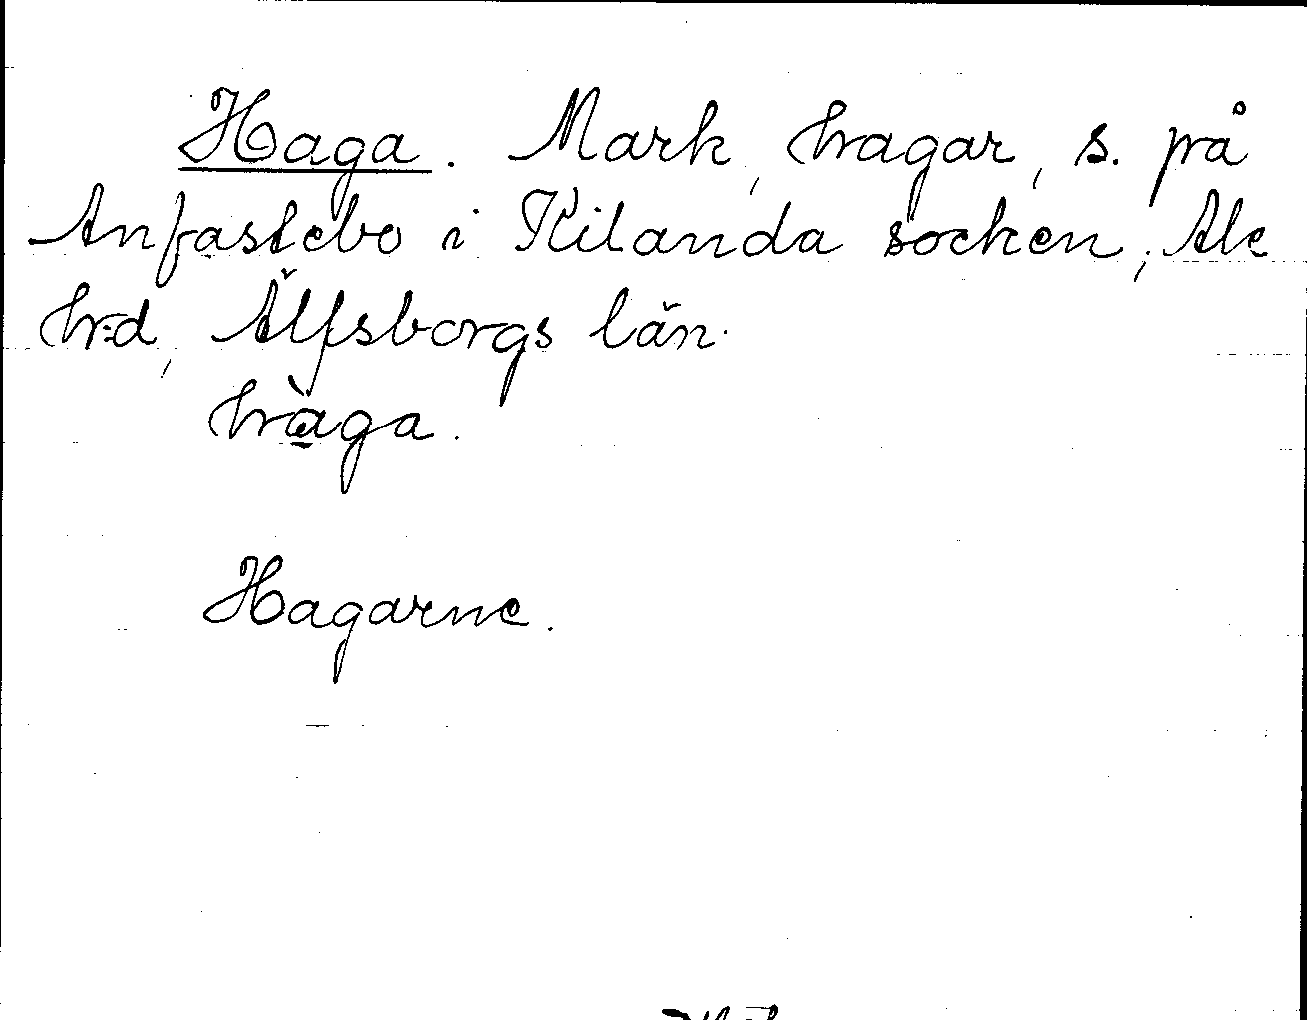 Haga. Mark, hagar, s. på
Anfastebo i Kilanda socken, Ale
hd, Älfsborgs län.
hàga.
Hagarne.